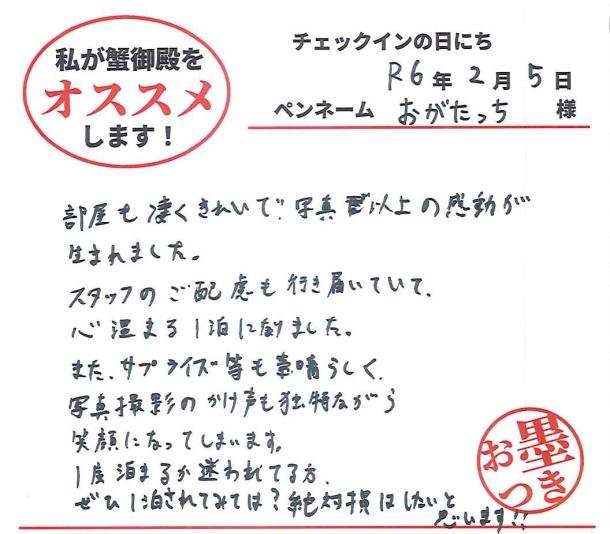 私が蟹御殿を
オススメ
します！
チェックインの日にち
R6年2月5日
ペンネーム おがたっち 様
部屋も凄くきれいで、写真以上の感動が
生まれました。
スタッフのご配慮も行き届いていて、
心温まる1泊になりました。
また、サプライズ等も素晴らしく、
写真撮影のかけ声も独特ながら
笑顔になってしまいます。
1度泊まるか迷われてる方、
ぜひ1泊されてみては？絶対損はしないと
思います!!
お墨つき